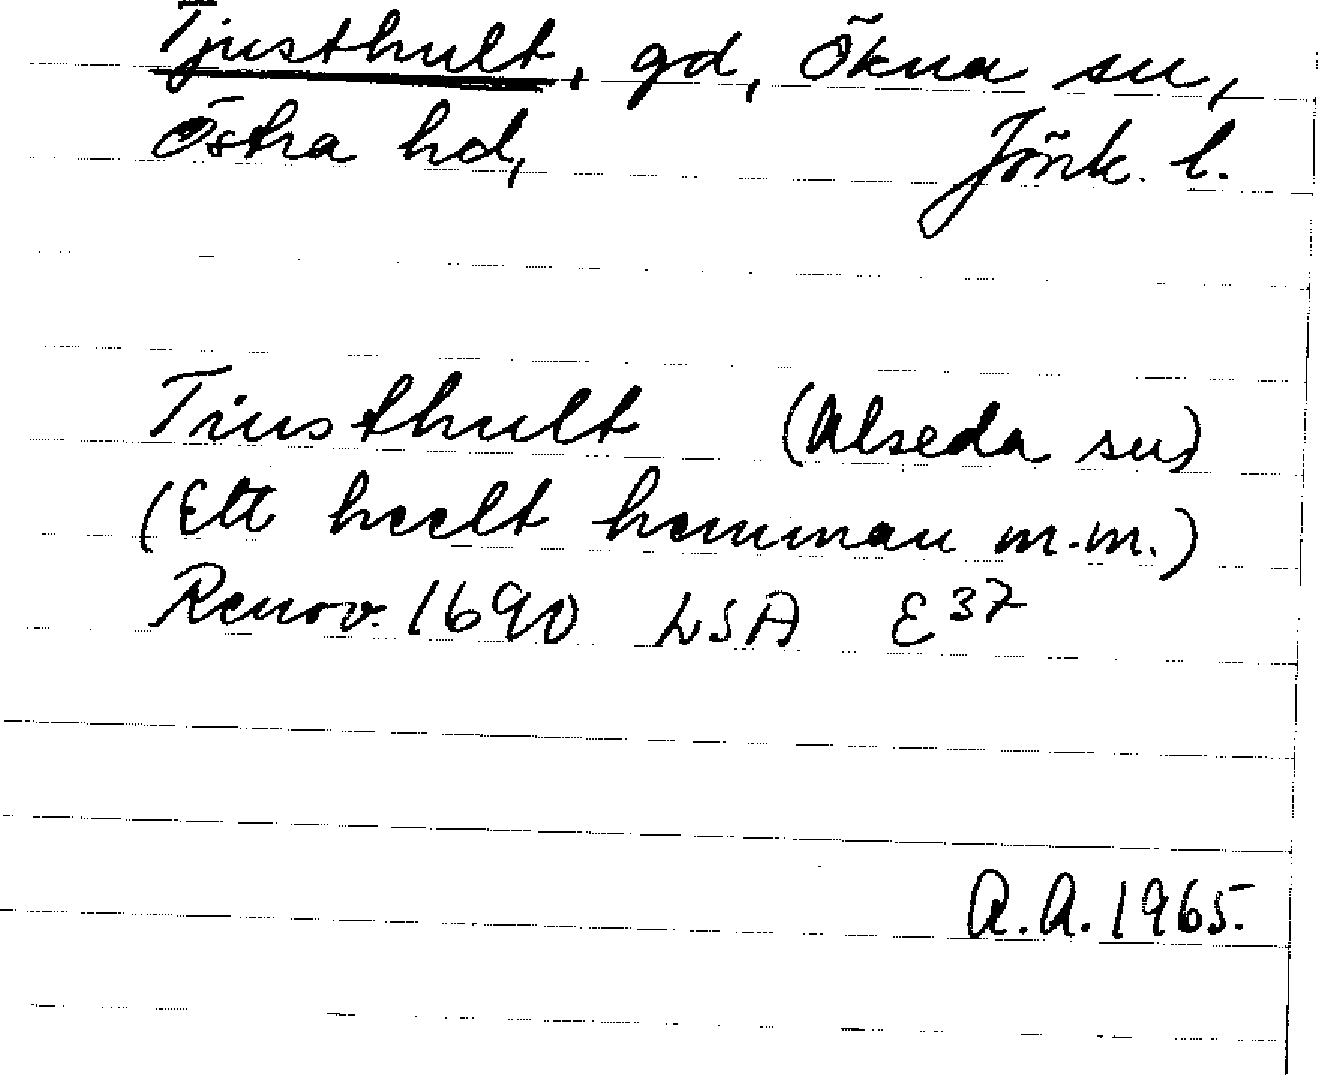 Tjusthult, gd, Ökna sn,
Östra hd, Jönk. l.
Tiusthult (Alseda sn)
(Ett heelt hemman m.m.)
Renov. 1690 LSA E 37
A.A. 1965.